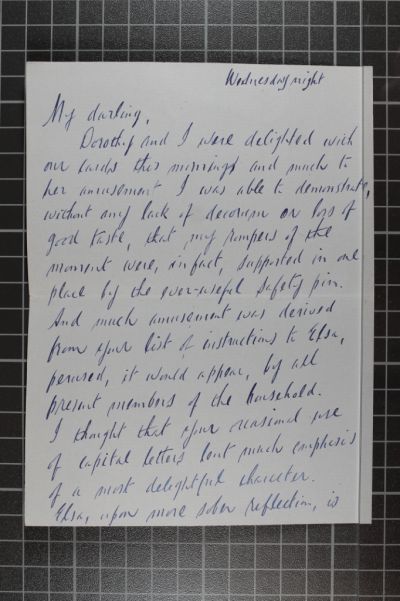 Wednesday night
My darling,
Dorothy and I were delighted with
our cards this morning and much to
her amusement I was able to demonstrate,
without any lack of decorum or loss of
good taste, that my rompers of the
moment were, in fact, supported in one
place by the ever-useful safety pin.
And much amusement was derived
from your list of instructions to Elsa,
perused, it would appear, by all
present members of the household.
I thought that your occasional use
of capital letters lent much emphasis
of a most delightful character.
Elsa, upon more sober reflection, is